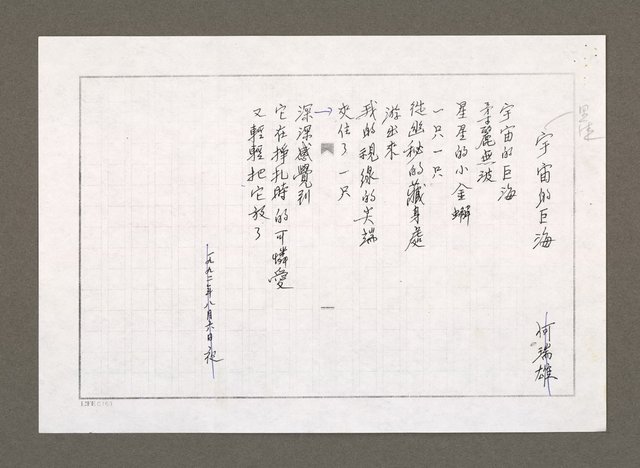 宇宙的巨海
何瑞雄
宇宙的巨海
季麗無波
星星的小金蝌
一只一只
從幽秘的藏身處
游出來
我的視線的尖端
夾住了一只
深深感覺到
它在掙扎時的可憐愛
又輕輕把它放了
一九九二年八月六日夜